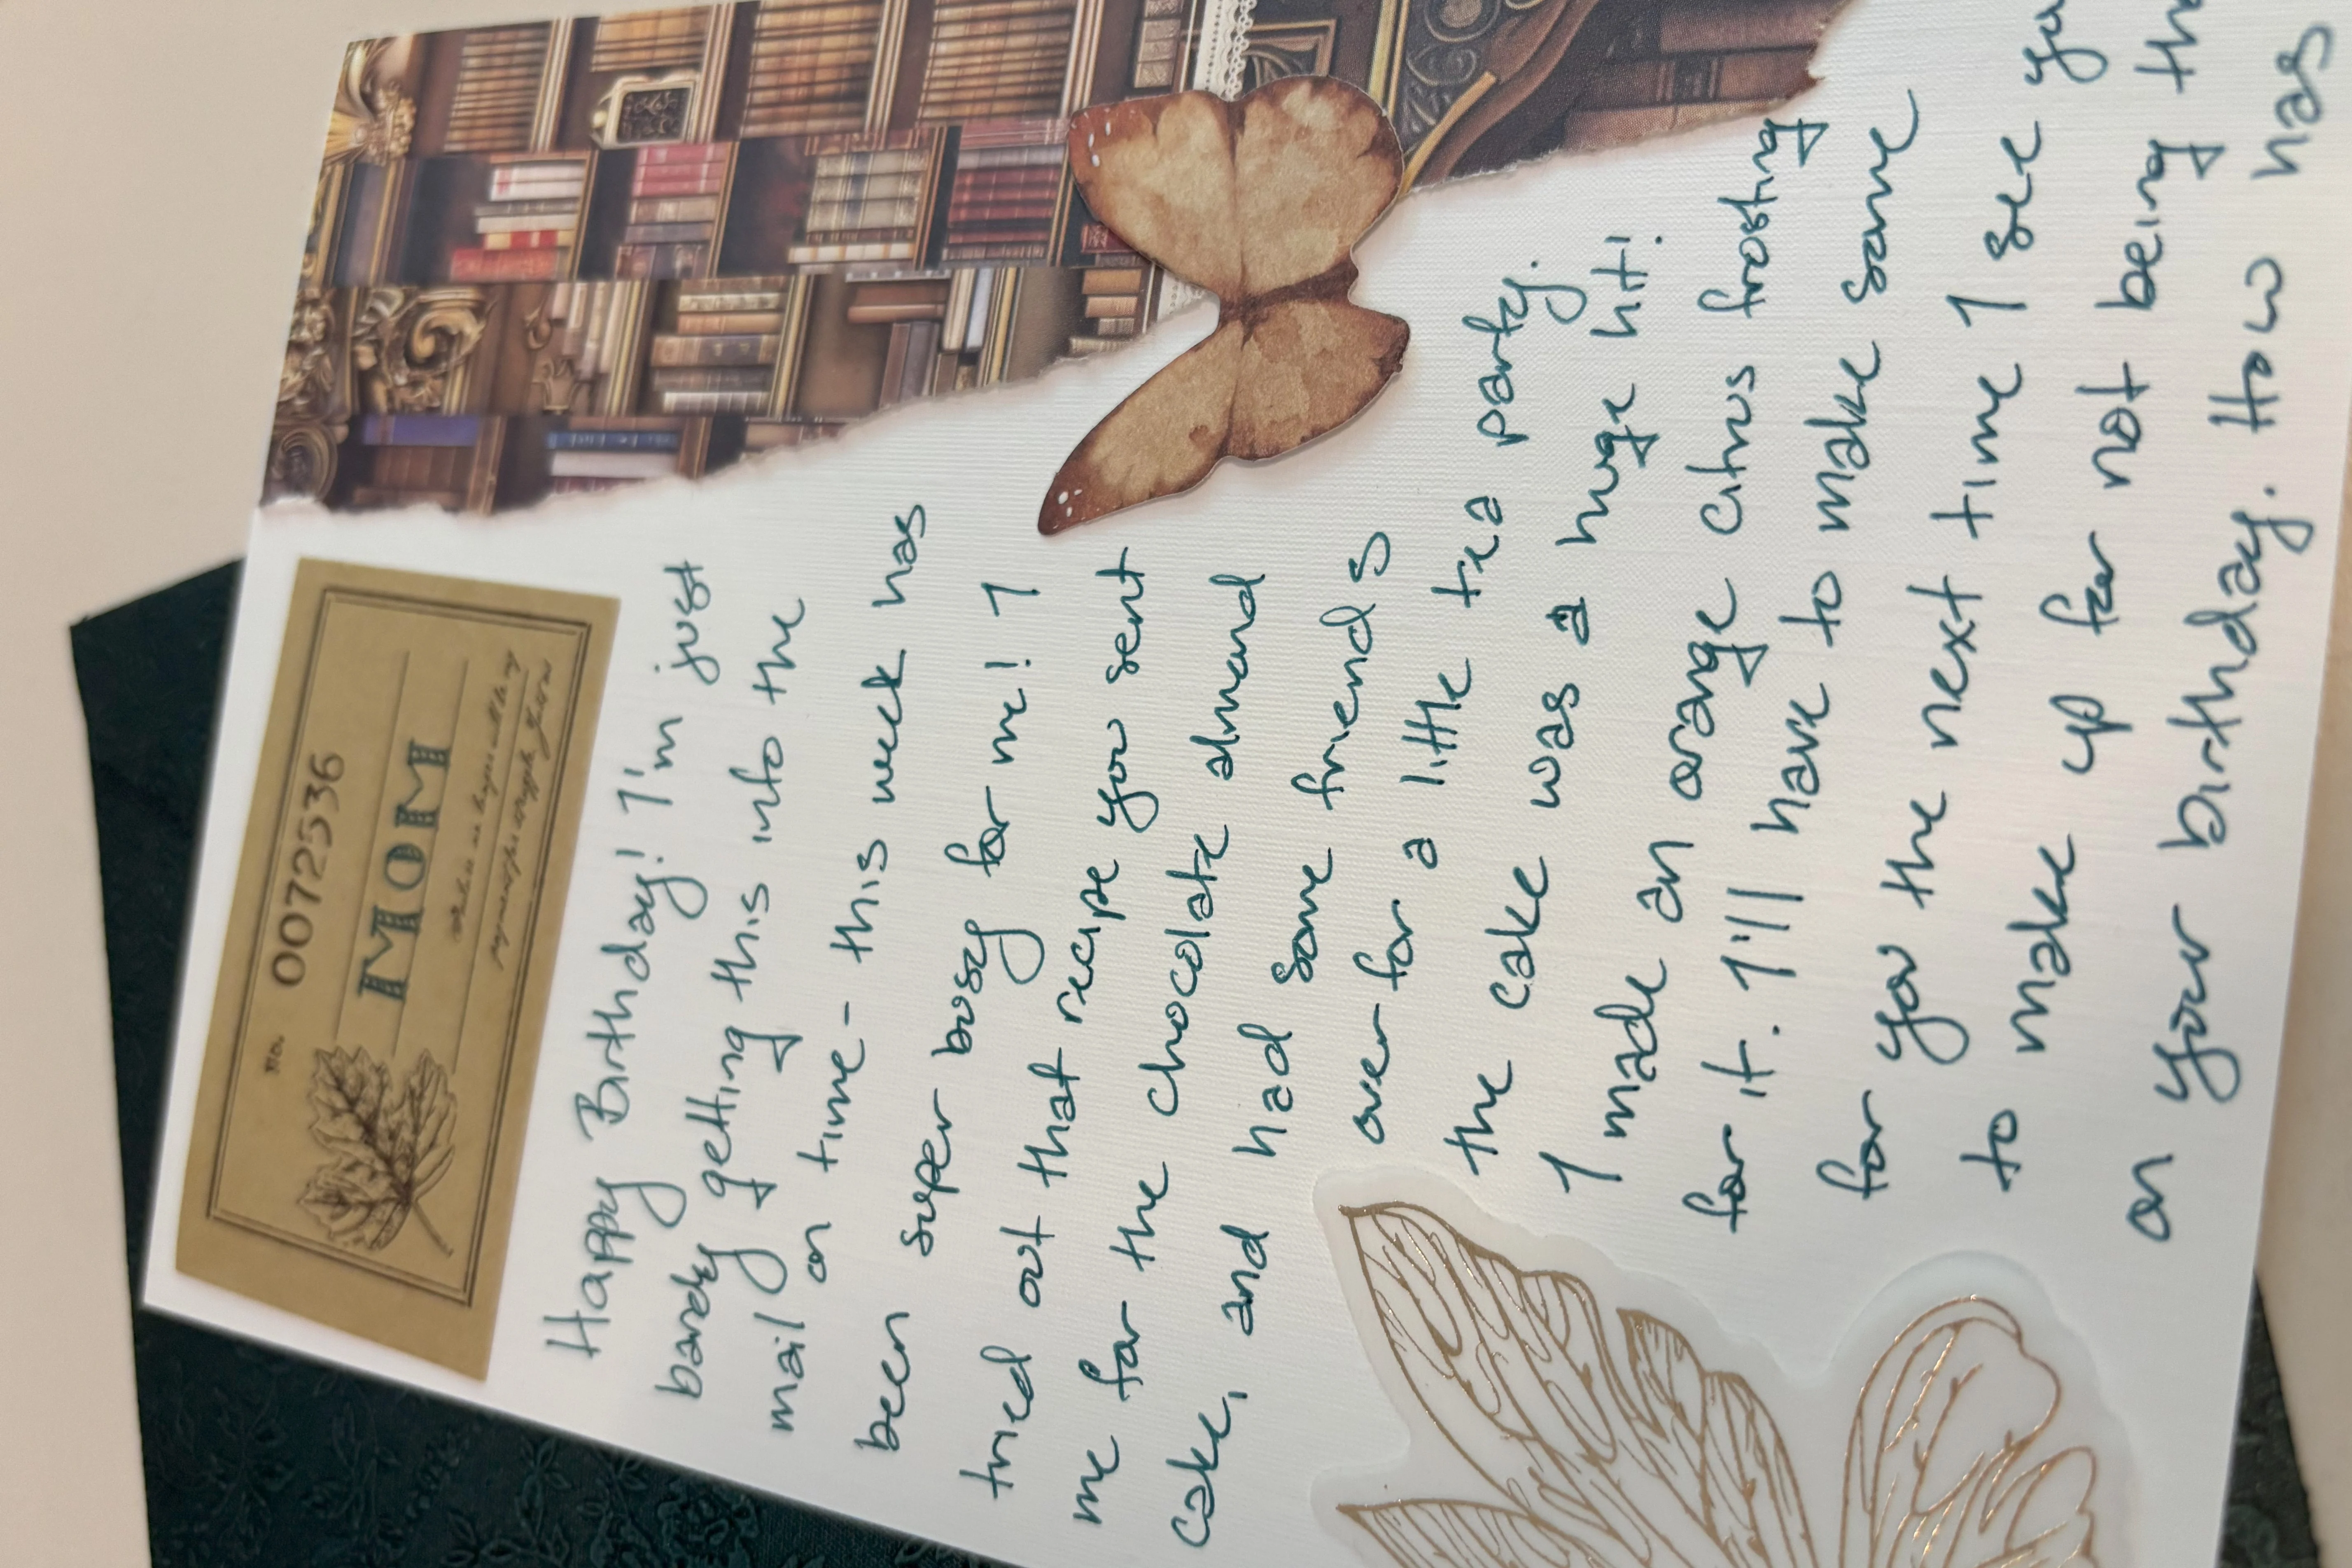 No. 0072536
MOM
Happy Birthday! I'm just
barely getting this into the
mail on time - this week has
been super busy for me! I
tried out that recipe you sent
me for the chocolate almond
cake, and had some friends
over for a little tea party.
the cake was a huge hit!
I made an orange citrus frosting
for it. I'll have to make some
for you the next time I see
to make up for not being
on your birthday. How has